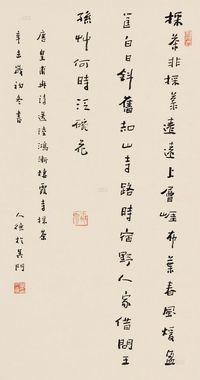 採茶非採菉遠遠上層崖布葉春風暖盈
筐白日斜舊知山寺路時宿野人家借問王
孫艸何時泛碗花
唐皇甫冉詩送陸鴻漸棲霞寺採茶
辛丑歲初冬書